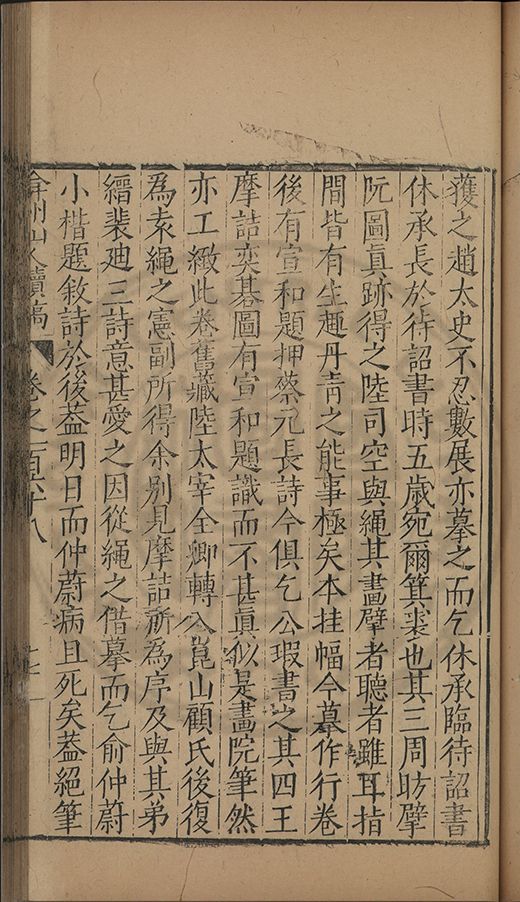 獲之趙太史不忍數展亦摹之而乞休承臨待詔書
休承長於待詔書時五歲宛爾箕裘也其三周昉擘
阮圖眞跡得之陸司空與繩其畫擘者聽者雖耳指
間皆有生趣丹青之能事極矣本挂幅今摹作行卷
後有宣和題押蔡元長詩今俱乞公瑕書之其四王
摩詰奕碁圖有宣和題識而不甚眞似是畫院筆然
亦工緻此卷舊藏陸太宰全卿轉入崑山顧氏後復
為袁繩之憲副所得余别見摩詰所為序及與其弟
縉裴廸三詩意甚愛之因從繩之借摹而乞俞仲蔚
小楷題敘詩於後葢明日而仲蔚病且死矣葢絕筆
弇州山人續稿 卷之一百六十八